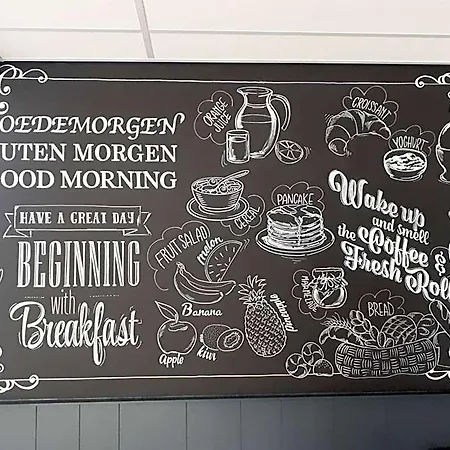 OEDEMORGEN
UTEN MORGEN
OOD MORNING
HAVE A GREAT DAY
BEGINNING
with
Breakfast
ORANGE
JUICE
CROISSANT
YOGHURT
CEREAL
PANCAKE
FRUIT SALAD
melon
Banana
Apple
kiwi
Pineapple
BREAD
Wake up
and smell
the Coffee &
Fresh Roll